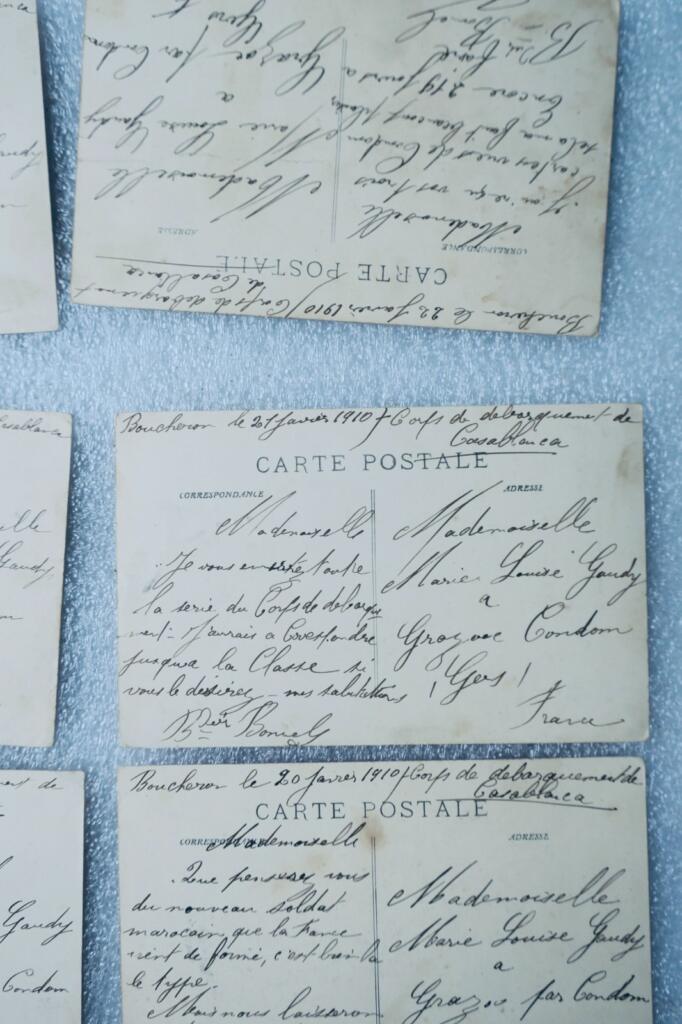 Boucheron le 22 Janvier 1910 / Corps de debarquement
de Casablanca
CARTE POSTALE
CORRESPONDANCE
ADRESSE
Mademoiselle
J'ai reçu vos trois
cartes vues de Condom
cela ma fait beaucoup plaisir
Encore 219 jours a
Mademoiselle
Marie Louise Gaudy
a
Grazac par Condom
Gers
Casablanca
Gaudy
Boucheron le 21 Janvier 1910 / Corps de debarquement de
Casablanca
CARTE POSTALE
CORRESPONDANCE
ADRESSE
Mademoiselle
Je vous envoie toute
la serie du Corps de debarque
ment - J'aurais a Corespondre
jusqua la Classe si
vous le désirez - mes salutations
Mademoiselle
Marie Louise Gaudy
a
Grazac Condom
(Gers)
France
Boucheron le 20 Janvier 1910 / Corps de debarquement de
Casablanca
CARTE POSTALE
CORRESPONDANCE
ADRESSE
Mademoiselle
Que penserez vous
du nouveau soldat
marocain que la France
vient de formé, c'est bien la
le type.
Mais nous laisseron
Mademoiselle
Marie Louise Gaudy
a
Grazac par Condom
Gaudy
Condom